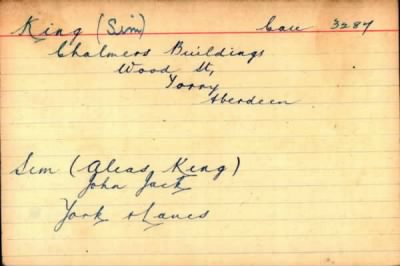 King (Sim) Cas 3287
Chalmers Buildings
Wood St,
Torry
Aberdeen
Sim (Alias King)
John Jack
York & Lancs